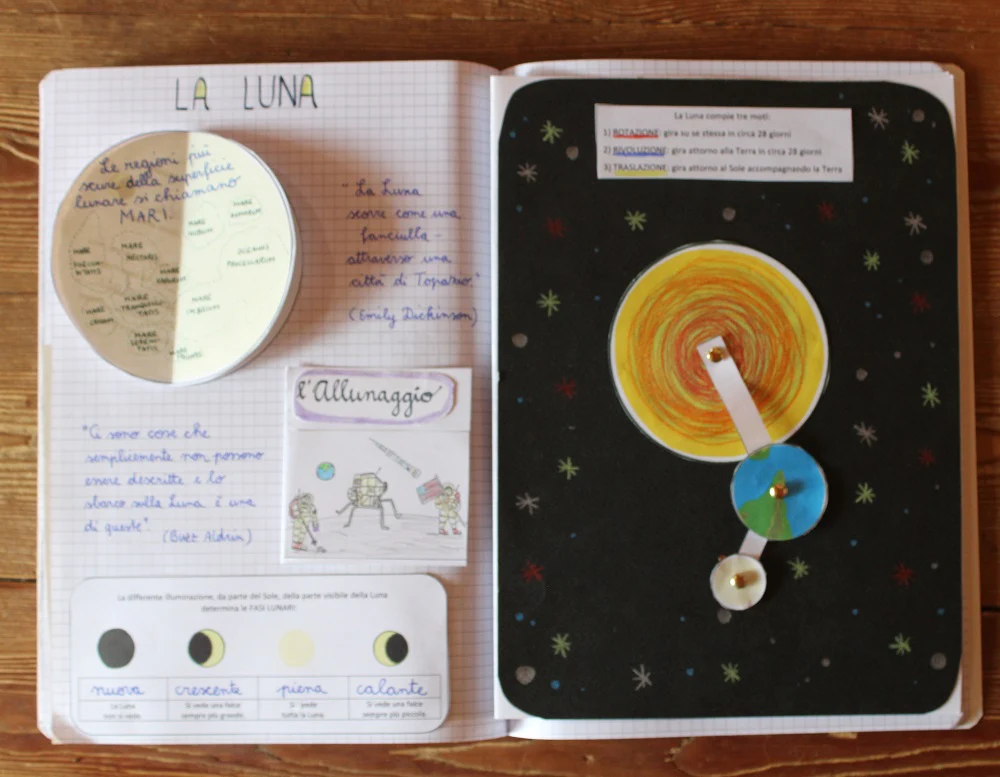 LA LUNA
Le regioni più
scure della superficie
lunare si chiamano
MARI.
MARE
HUMORUM
MARE
NUBIUM
OCEANUS
PROCELLARUM
MARE
MARE
NECTARIS
MARE
MARE
TRANQUILLI-
TATIS
MARE
IMBRIUM
MARE
CRISIUM
MARE
SERENI-
TATIS
"La Luna
scorre come una
fanciulla -
attraverso una
città di Topazio."
(Emily Dickinson)
l'Allunaggio
"Ci sono cose che
semplicemente non possono
essere descritte e lo
sbarco sulla Luna è una
di queste".
(Buzz Aldrin)
La differente illuminazione, da parte del Sole, della parte visibile della Luna
determina le FASI LUNARI:
nuova
crescente
piena
calante
La Luna
non si vede.
Si vede una falce
sempre più grande.
Si vede
tutta la Luna.
Si vede una falce
sempre più piccola.
La Luna compie tre moti:
1) ROTAZIONE: gira su se stessa in circa 28 giorni
2) RIVOLUZIONE: gira attorno alla Terra in circa 28 giorni
3) TRASLAZIONE: gira attorno al Sole accompagnando la Terra